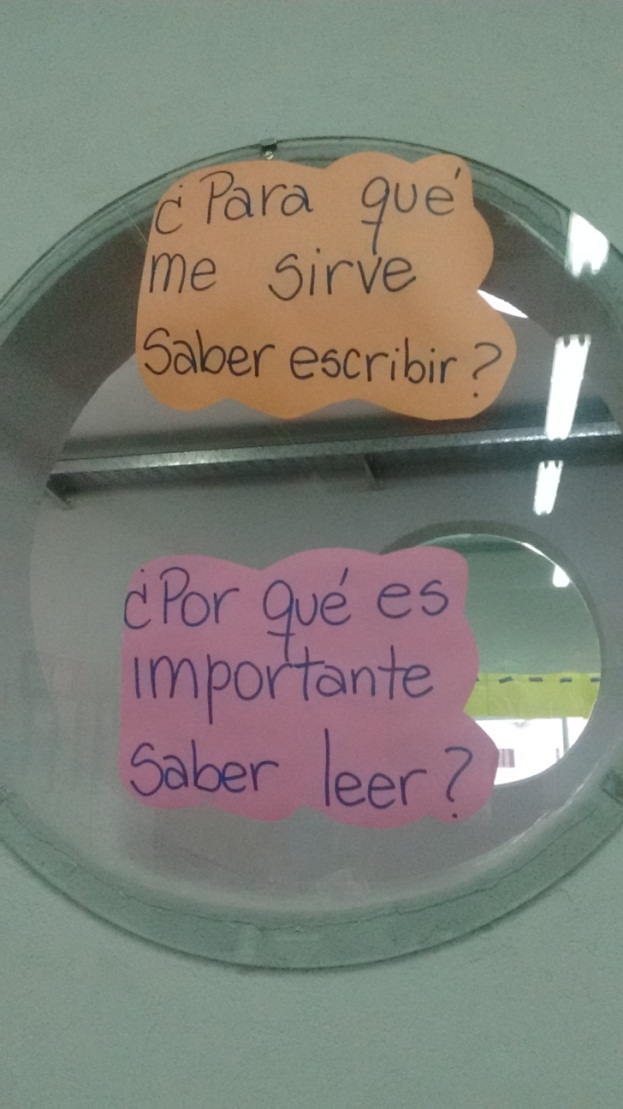 ¿Para qué
me sirve
Saber escribir?
¿Por qué es
importante
Saber leer?